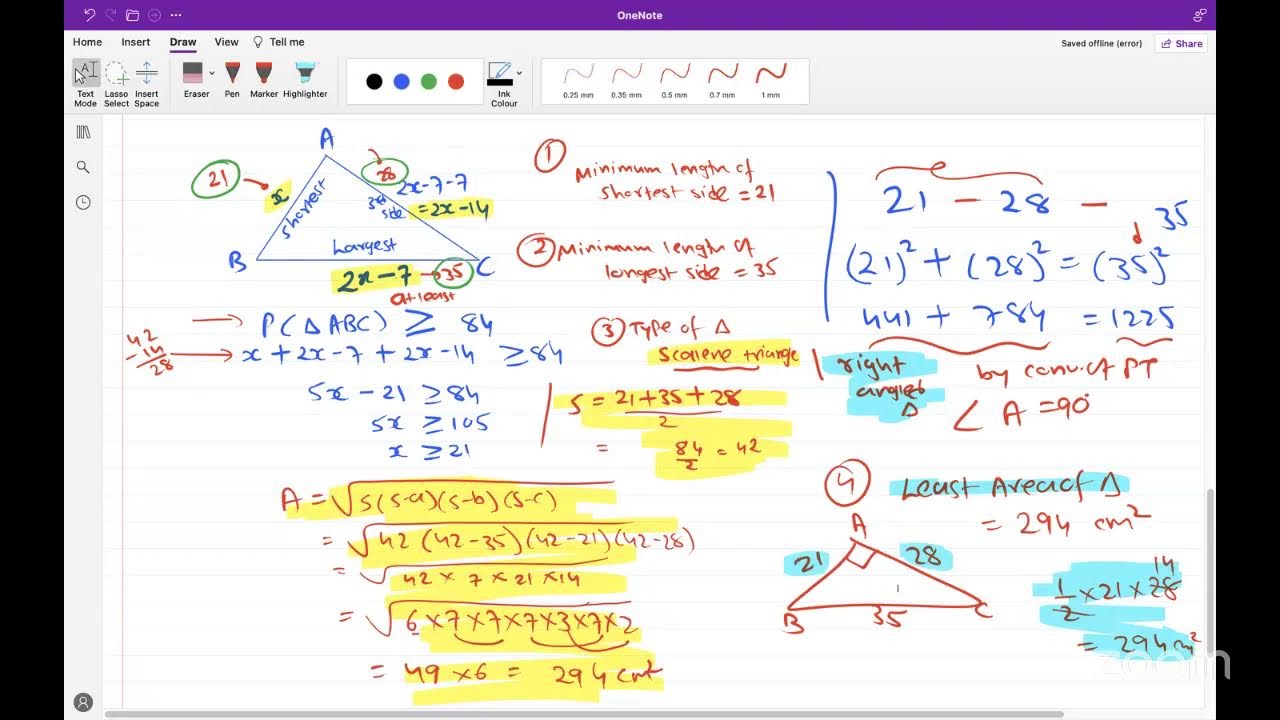 OneNote
Home Insert Draw View Tell me
Saved offline (error) Share
Text Mode
Lasso Select
Insert Space
Eraser
Pen
Marker
Highlighter
Ink Colour
0.25 mm 0.35 mm 0.5 mm 0.7 mm 1 mm
A
21
x
shortest
28
2x-7-7
3rd side = 2x-14
B
Largest
C
2x-7 → 35
at least
42
-14
28
→ P(△ABC) ≥ 84
→ x + 2x-7 + 2x-14 ≥ 84
5x - 21 ≥ 84
5x ≥ 105
x ≥ 21
① Minimum length of
shortest side = 21
② Minimum length of
longest side = 35
③ Type of △
scalene triangle
S = 21+35+28
2
= 84/2 = 42
A = √s(s-a)(s-b)(s-c)
= √42 (42-35)(42-21)(42-28)
= √42 × 7 × 21 × 14
= √6×7×7×7×3×7×2
= 49 × 6 = 294 cm²
21 - 28 - 35
(21)² + (28)² = (35)²
441 + 784 = 1225
right
angled
△
by conv. of PT
∠A = 90°
④ Least Area of △
= 294 cm²
A
21
28
B
35
C
14
1/2 × 21 × 28
= 294 cm²
zoom